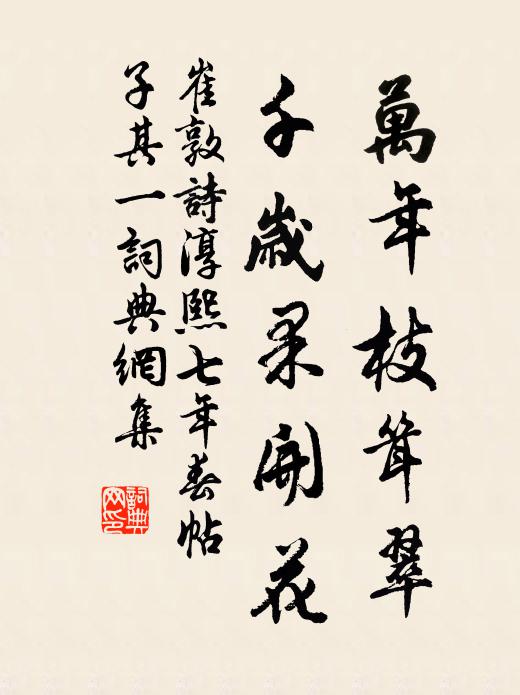 萬年枝聳翠
千歲果開花
崔敦詩淳熙七年春帖
子其一詞典網集
詞典網印